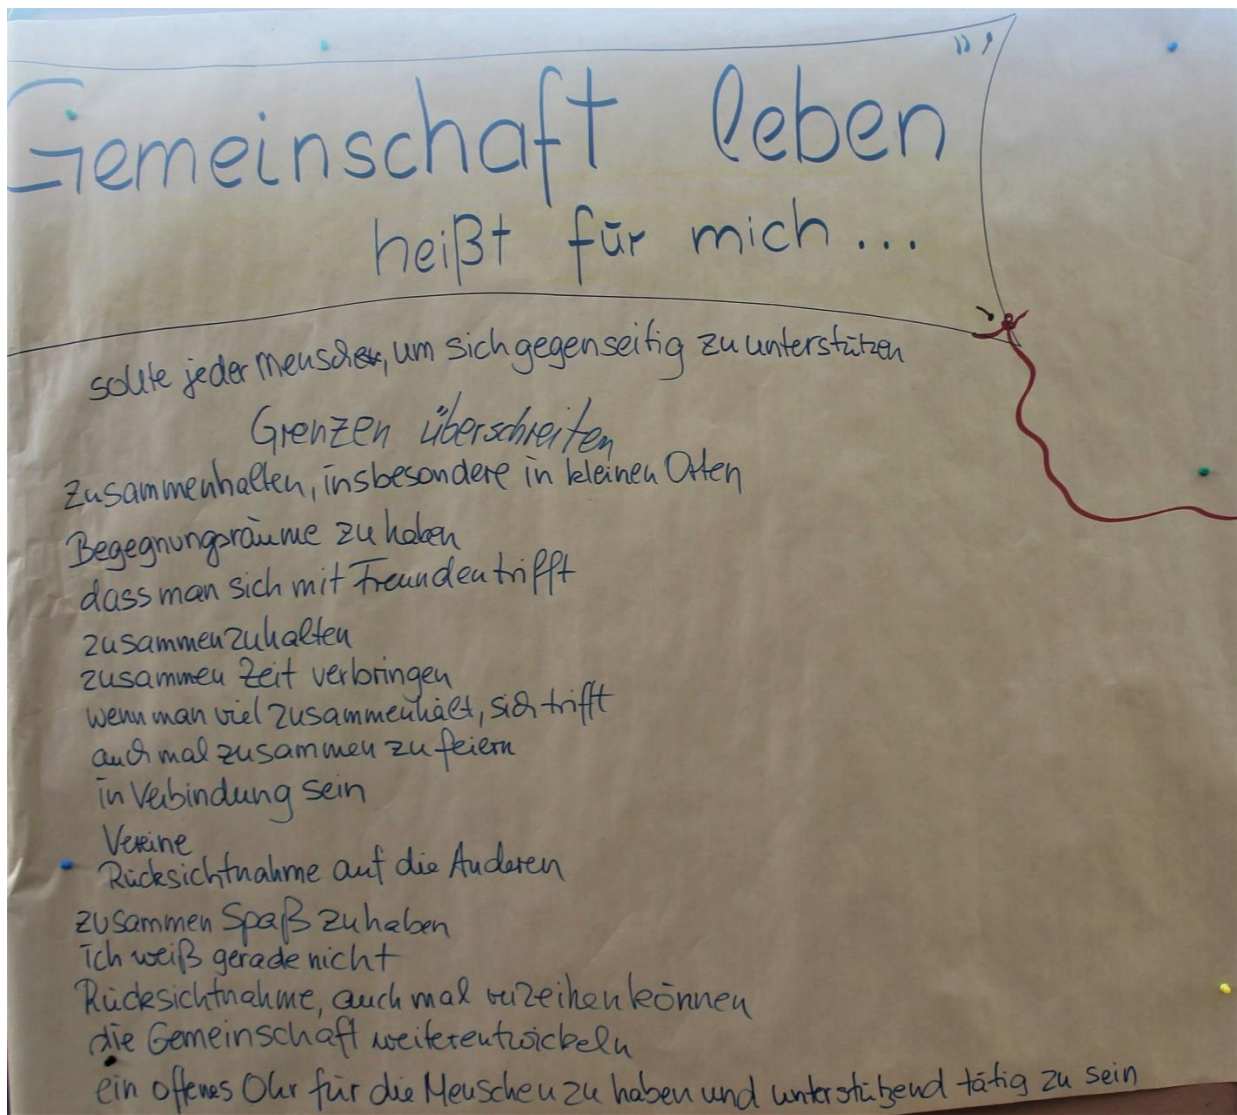 Gemeinschaft leben
heißt für mich ...
sollte jeder Mensch, um sich gegenseitig zu unterstützen
Grenzen überschreiten
Zusammenhalten, insbesondere in kleinen Orten
Begegnungsräume zu haben
dass man sich mit Freunden trifft
zusammenzuhalten
zusammen Zeit verbringen
wenn man viel zusammenhält, sich trifft
auch mal zusammen zu feiern
in Verbindung sein
Vereine
Rücksichtnahme auf die Anderen
zusammen Spaß zu haben
ich weiß gerade nicht
Rücksichtnahme, auch mal verzeihen können
die Gemeinschaft weiterentwickeln
ein offenes Ohr für die Menschen zu haben und unterstützend tätig zu sein